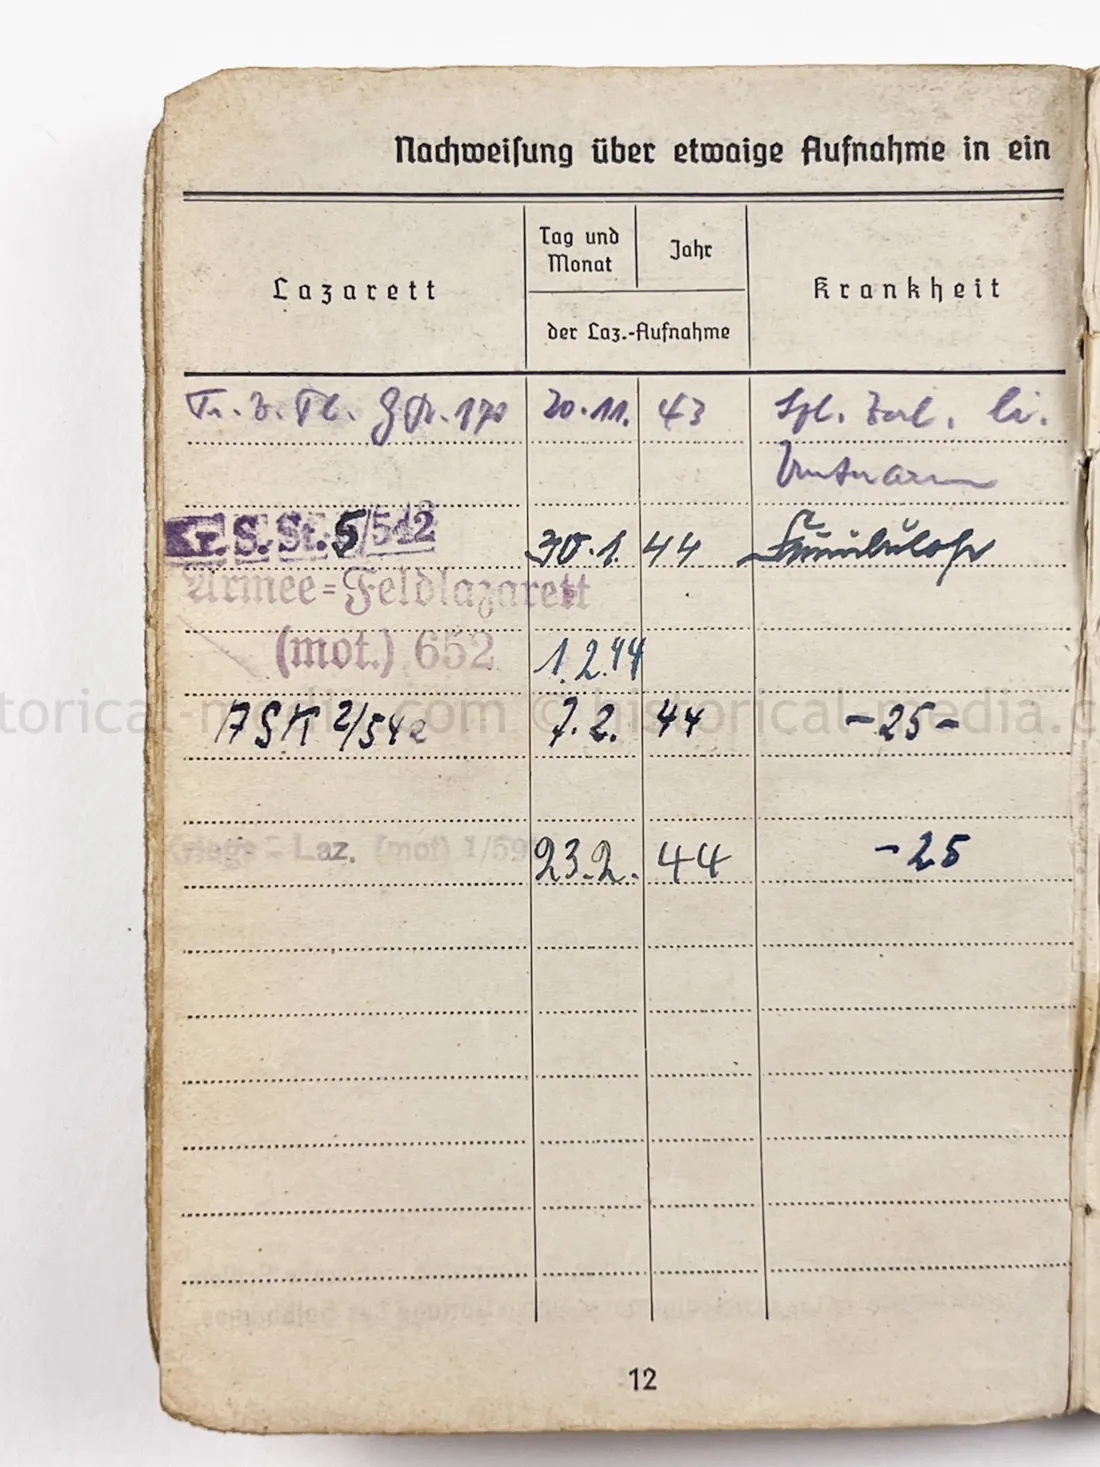 Nachweisung über etwaige Aufnahme in ein
Lazarett
Tag und Monat
Jahr
der Laz.-Aufnahme
Krankheit
Tr. V. Pl. 20.11. 43 li.
Kr. S. St. 5/542 30.1. 44
Armee-Feldlazarett
(mot.) 652 1.2.44
torical-media.com © historical-media.c
2/542 7.2. 44 -25-
Kriegs-Laz. (mot) 1/59 23.2. 44 -25
12